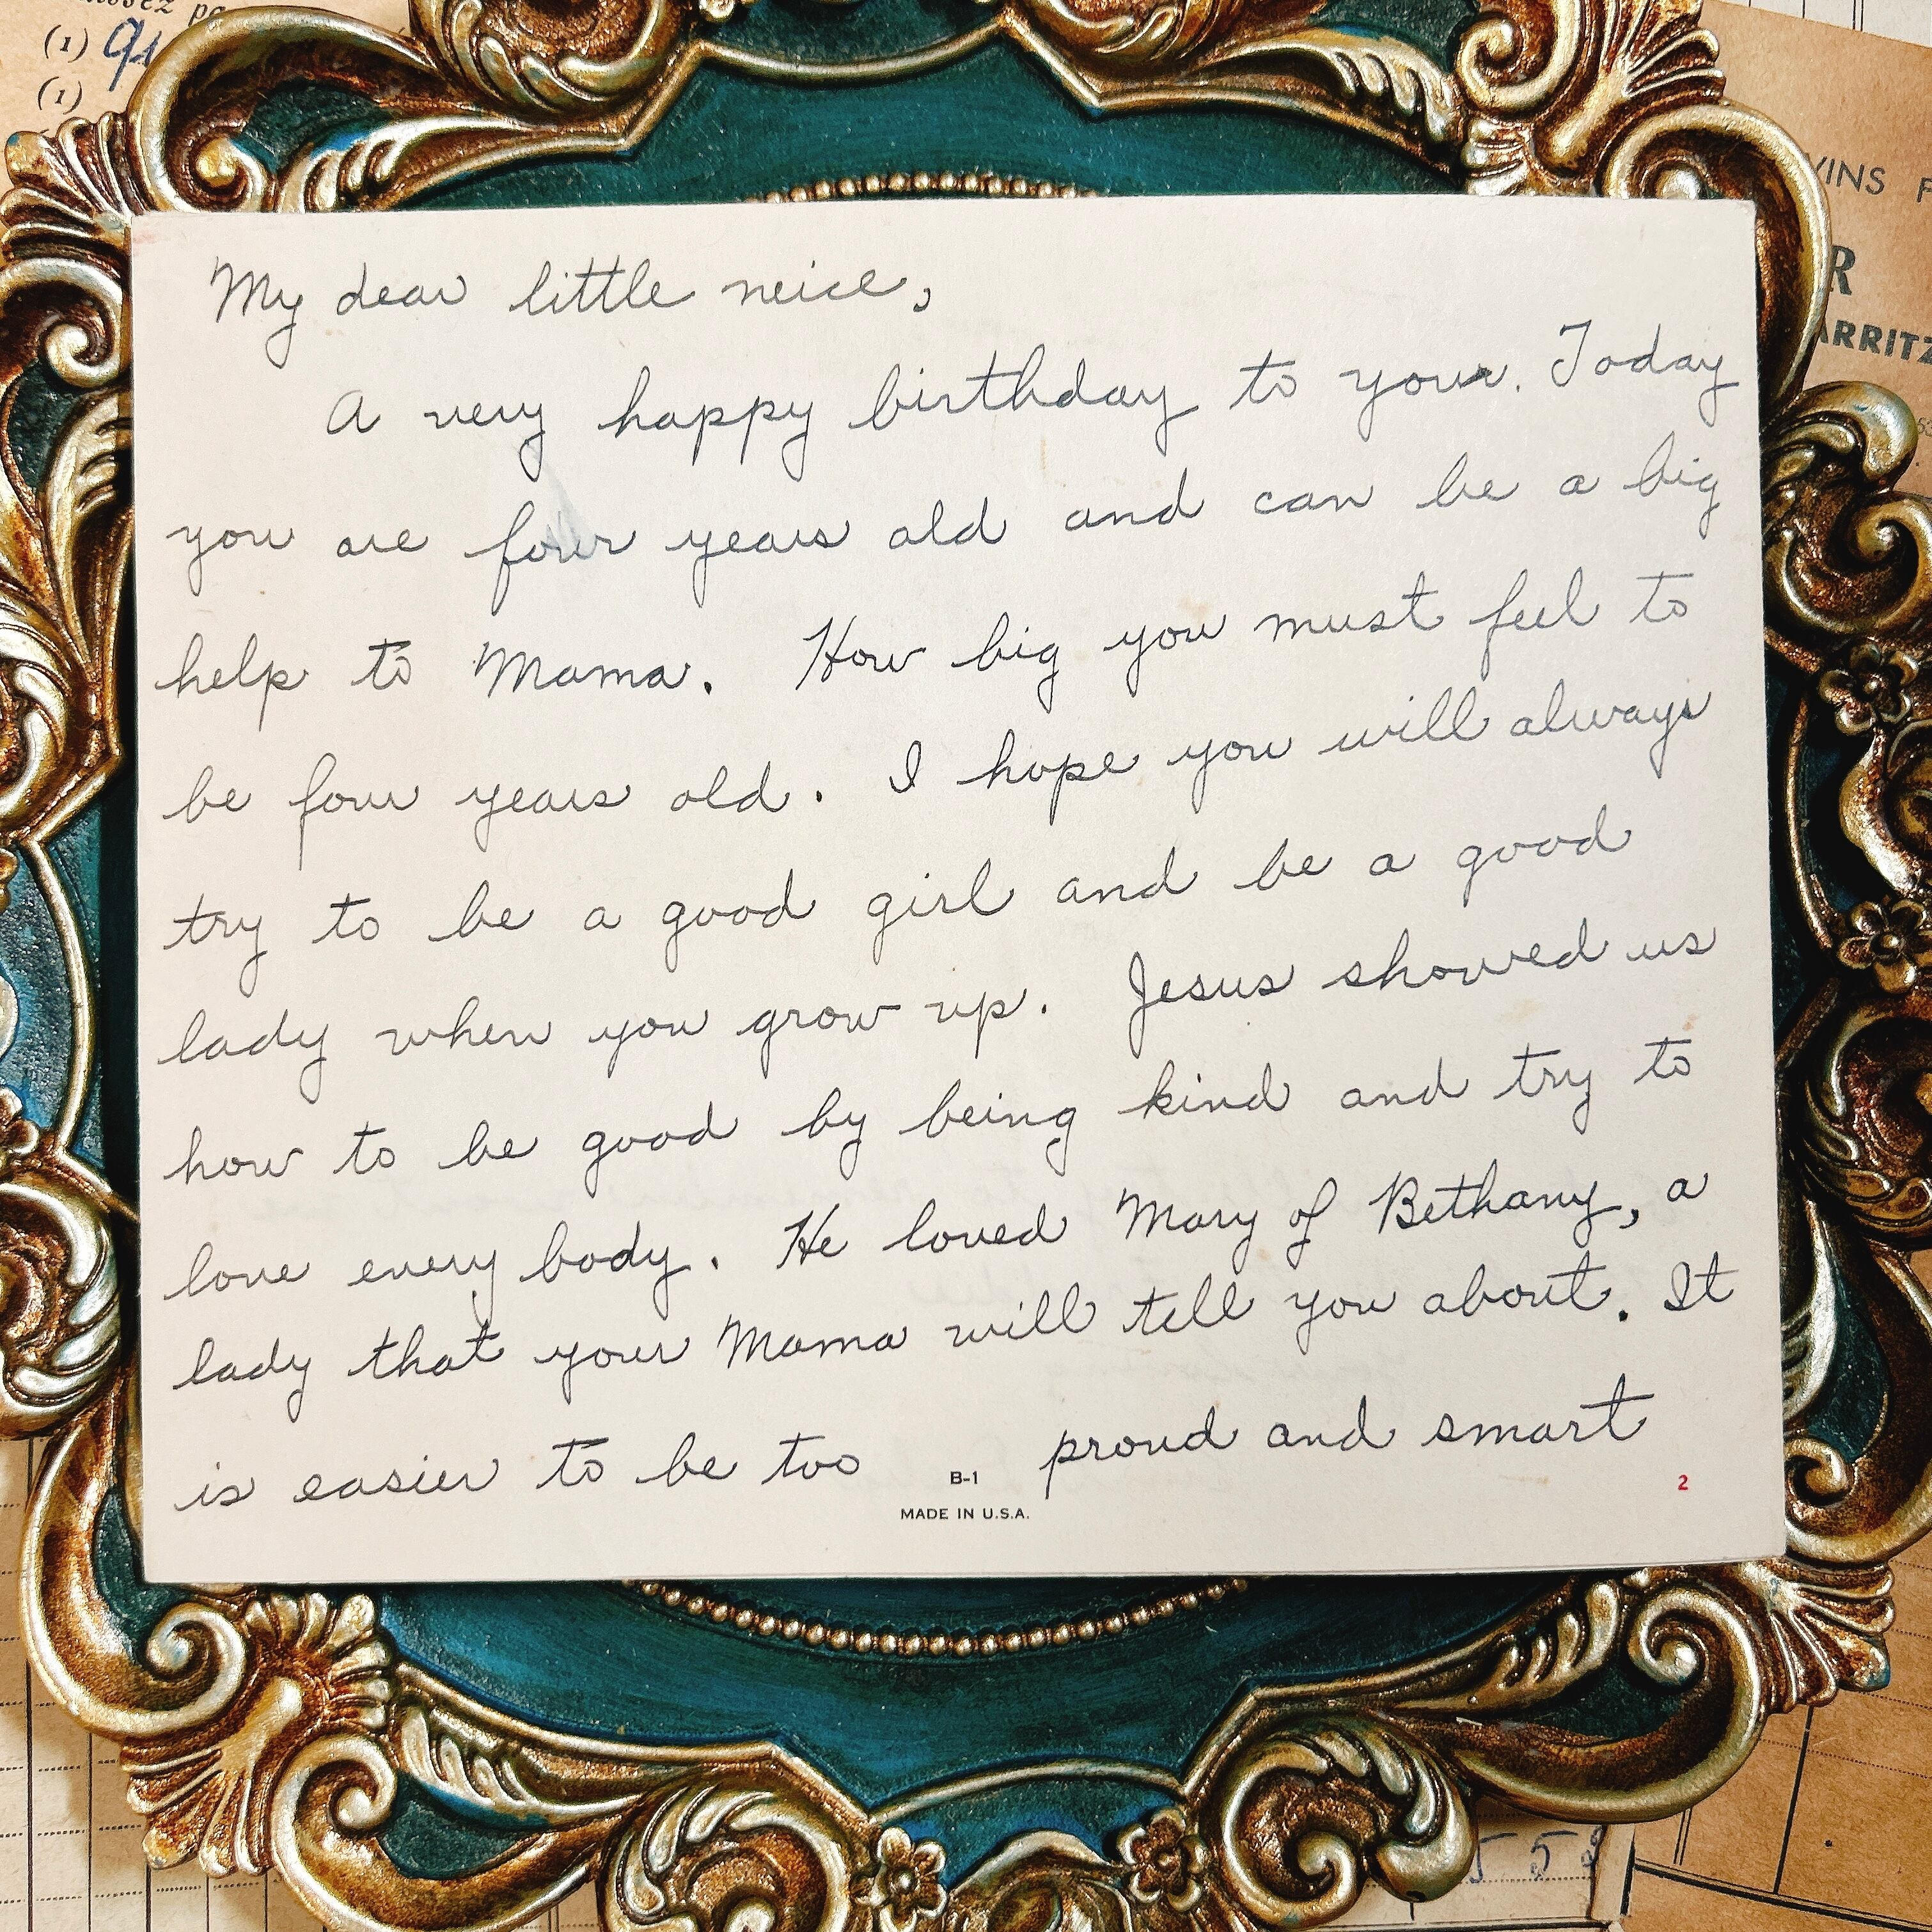 (1)
(1)
VINS F
R
ARRITZ
My dear little neice,
A very happy birthday to your. Today
you are four years old and can be a big
help to Mama. How big you must feel to
be four years old. I hope you will always
try to be a good girl and be a good
lady when you grow up. Jesus showed us
how to be good by being kind and try to
love every body. He loved Mary of Bethany, a
lady that your Mama will tell you about. It
is easier to be too proud and smart
B-1
MADE IN U.S.A.
2